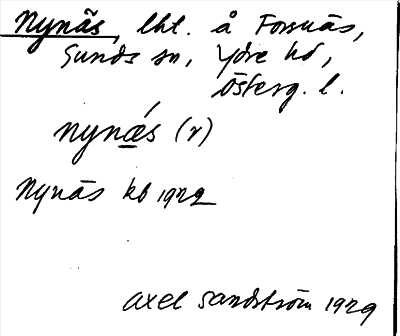 Nynäs, lht. å Forsnäs,
Sunds sn, Ydre hd,
Österg. l.
nynǽs (r)
Nynäs kb 1922
Axel Sandström 1929